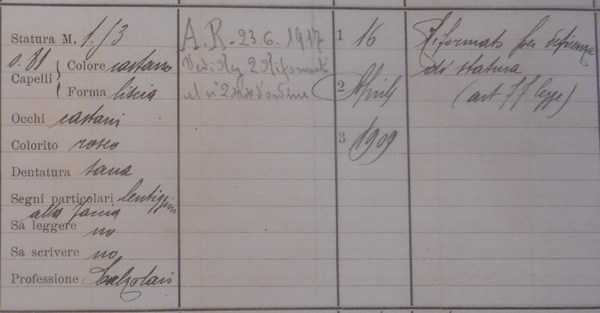 Statura M. 1./3
0.81
Capelli { Colore castano
Forma liscia
Occhi castani
Colorito roseo
Dentatura sana
Segni particolari lentiggini
alla faccia
Sa leggere no
Sa scrivere no
Professione Calzolaio
A. R. 23.6.1917
Vedi Reg 2 Riformati
al n° 2 d'ordine
1 16
2 Aprile
3 1909
Riformato per deficienza
di statura
(art 77 legge)